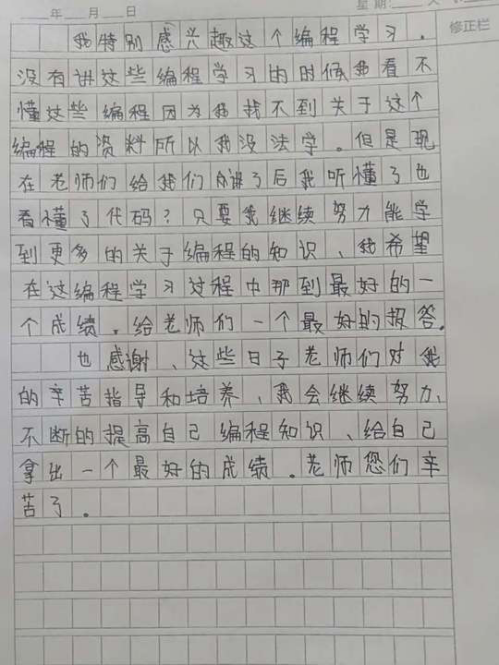 年 月 日 星期: 天
修正栏
我特别感兴趣这个编程学习.
没有讲这些编程学习的时候我看不
懂这些编程因为我找不到关于这个
编程的资料所以我没法学。但是现
在老师们给我们讲了后我听懂了也
看懂了代码?只要我继续努力能学
到更多的关于编程的知识、我希望
在这编程学习过程中那到最好的一
个成绩.给老师们一个最好的报答.
也感谢、这些日子老师们对我
的辛苦指导和培养、我会继续努力、
不断的提高自己编程知识、给自己
拿出一个最好的成绩.老师您们辛
苦了.